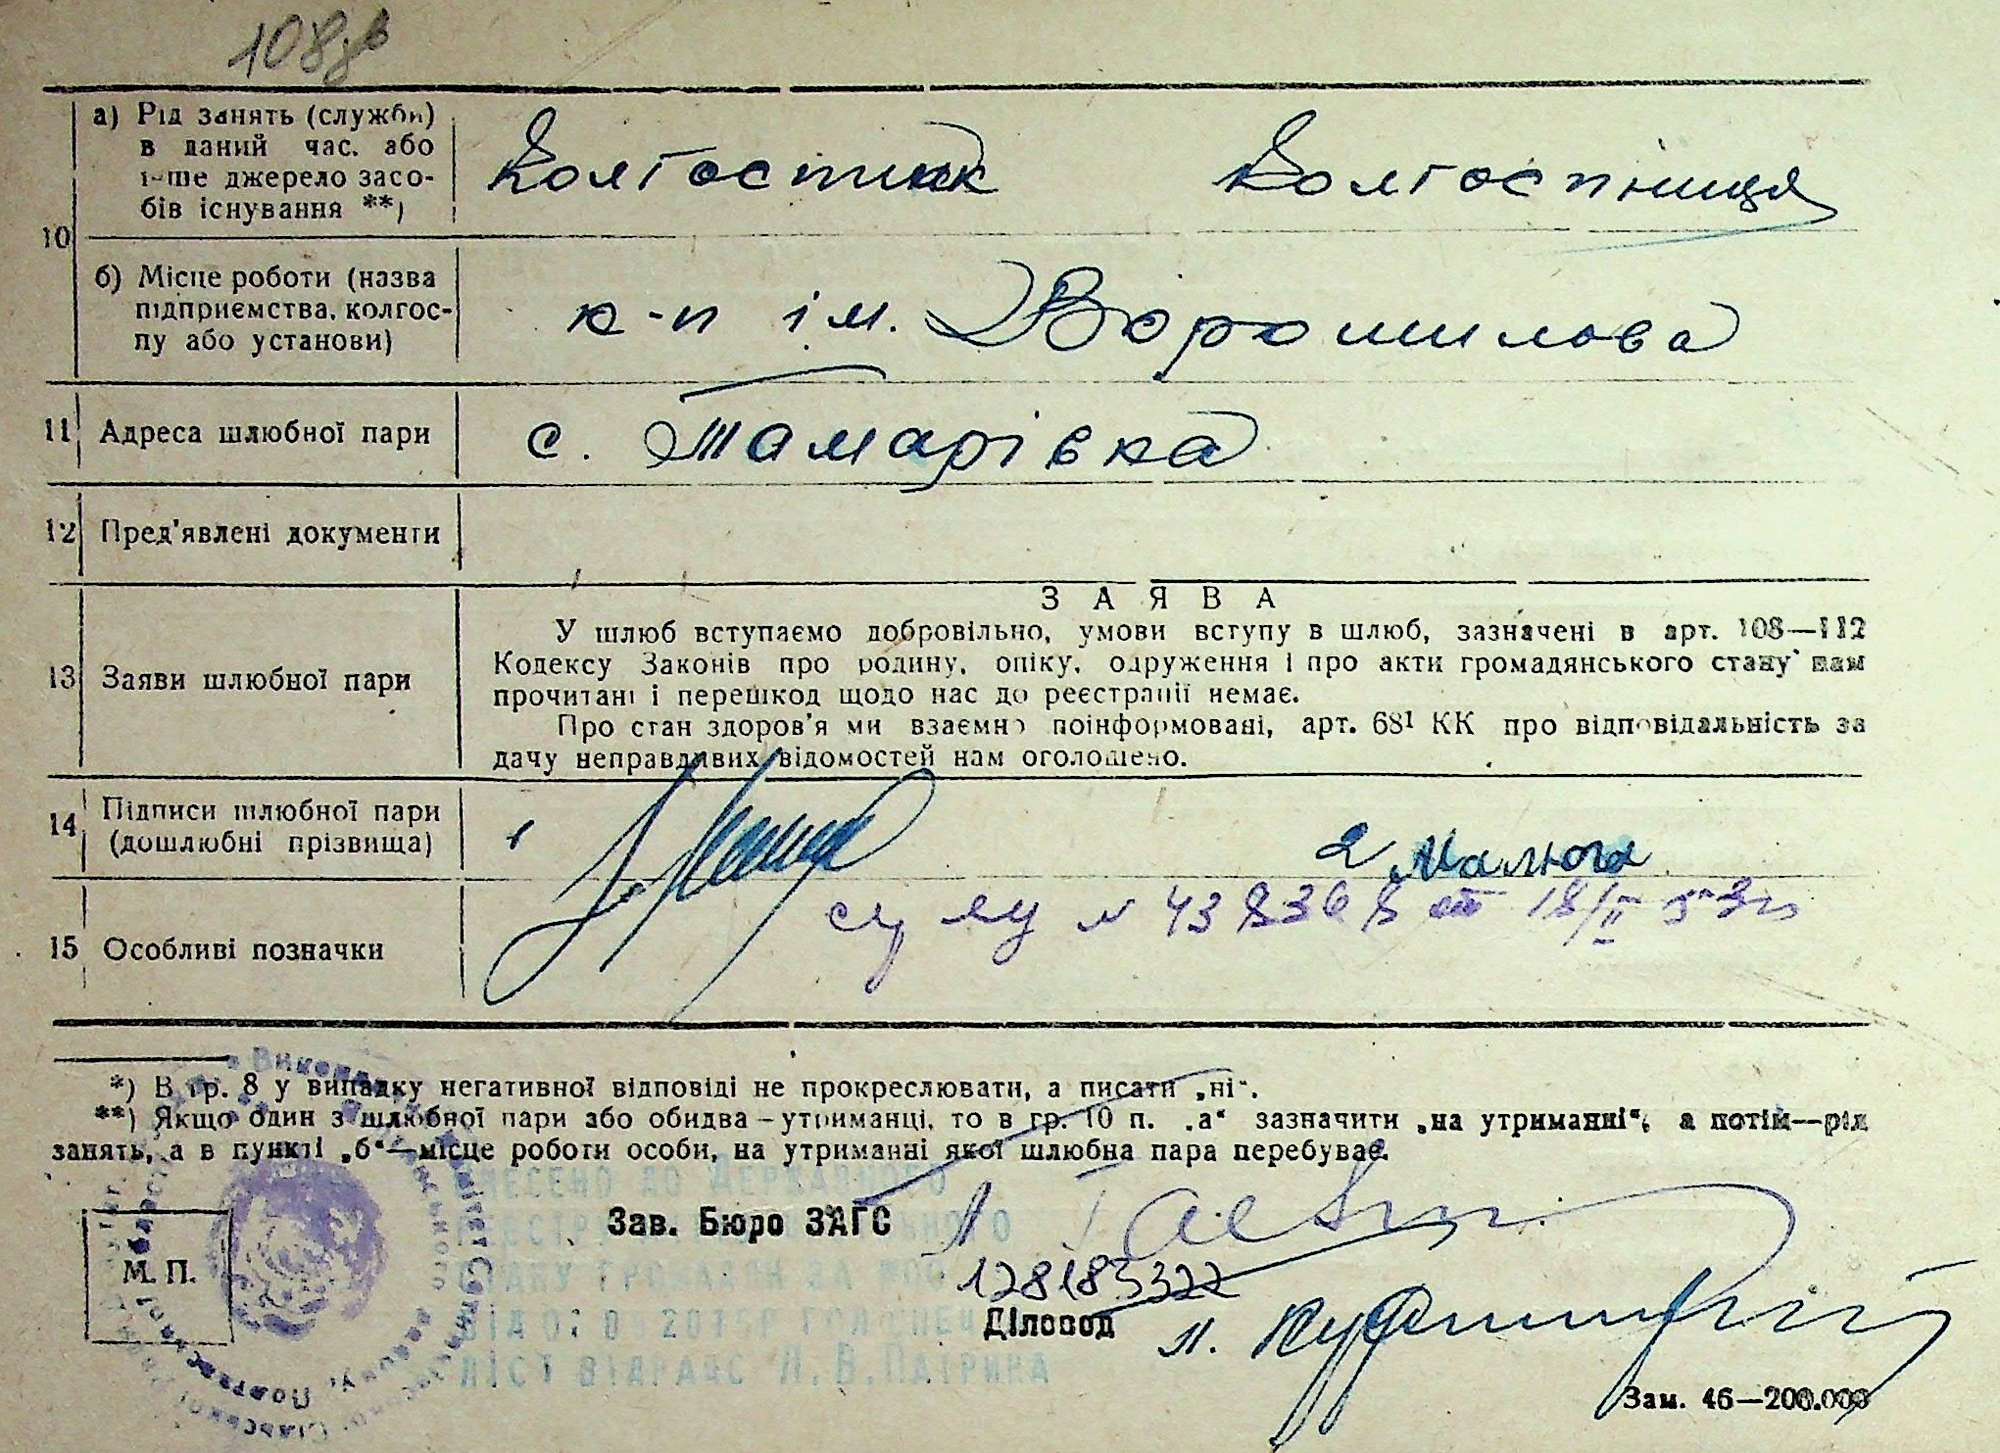 108 зв
10
а) Рід занять (служби)
в даний час, або
інше джерело засо-
бів існування **)
Колгоспник Колгоспниця
б) Місце роботи (назва
підприємства, колгос-
пу або установи)
к-п ім. Ворошилова
11 Адреса шлюбної пари
с. Тамарівка
12 Пред'явлені документи
13 Заяви шлюбної пари
ЗАЯВА
У шлюб вступаємо добровільно, умови вступу в шлюб, зазначені в арт. 108—112
Кодексу Законів про родину, опіку, одруження і про акти громадянського стану нам
прочитані і перешкод щодо нас до реєстрації немає.
Про стан здоров'я ми взаємно поінформовані, арт. 68¹ КК про відповідальність за
дачу неправдивих відомостей нам оголошено.
14 Підписи шлюбної пари
(дошлюбні прізвища)
1 2 Малюга
15 Особливі позначки
N 438368 от 18/II 53г
*) В гр. 8 у випадку негативної відповіді не прокреслювати, а писати „ні“.
**) Якщо один з шлюбної пари або обидва – утриманці, то в гр. 10 п. „а“ зазначити „на утриманні“, а потім—рід
занять, а в пункті „б“—місце роботи особи, на утриманні якої шлюбна пара перебуває.
Внесено до Державного
Зав. Бюро ЗАГС
М. П.
128183322
Діловод
Зам. 46—200.000